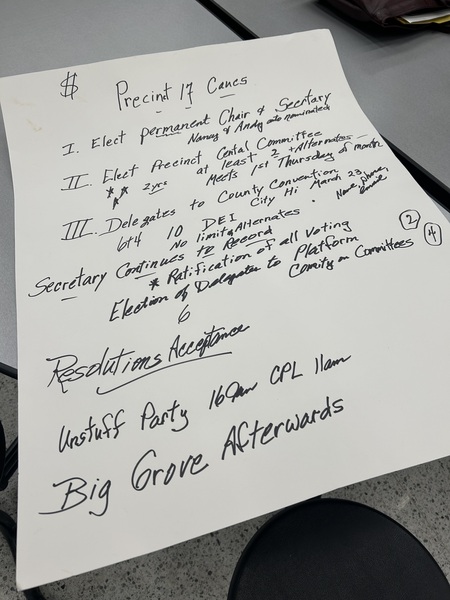 $
Precint 17 Caucs
I. Elect permanent Chair & Secretary
Nancy & Andy are nominated
II. Elect Precinct Central Committee
** 2yrs at least 2 + Alternates
* Meets 1st Thursday of month
III. Delegates to County Convention
City Hi March 23
6+4 10 DEI • Name, phone, email
No limit Alternates
Secretary Continues to Record
* Ratification of all Voting
Election of Delegates to Platform (2)
Comity on Committees (4)
6
Resolutions Acceptance
Unstuff Party CPL 11am
Big Grove Afterwards